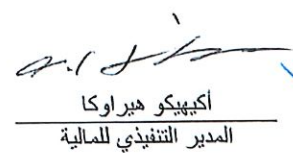 أكيهيكو هيراوكا
المدير التنفيذي للمالية